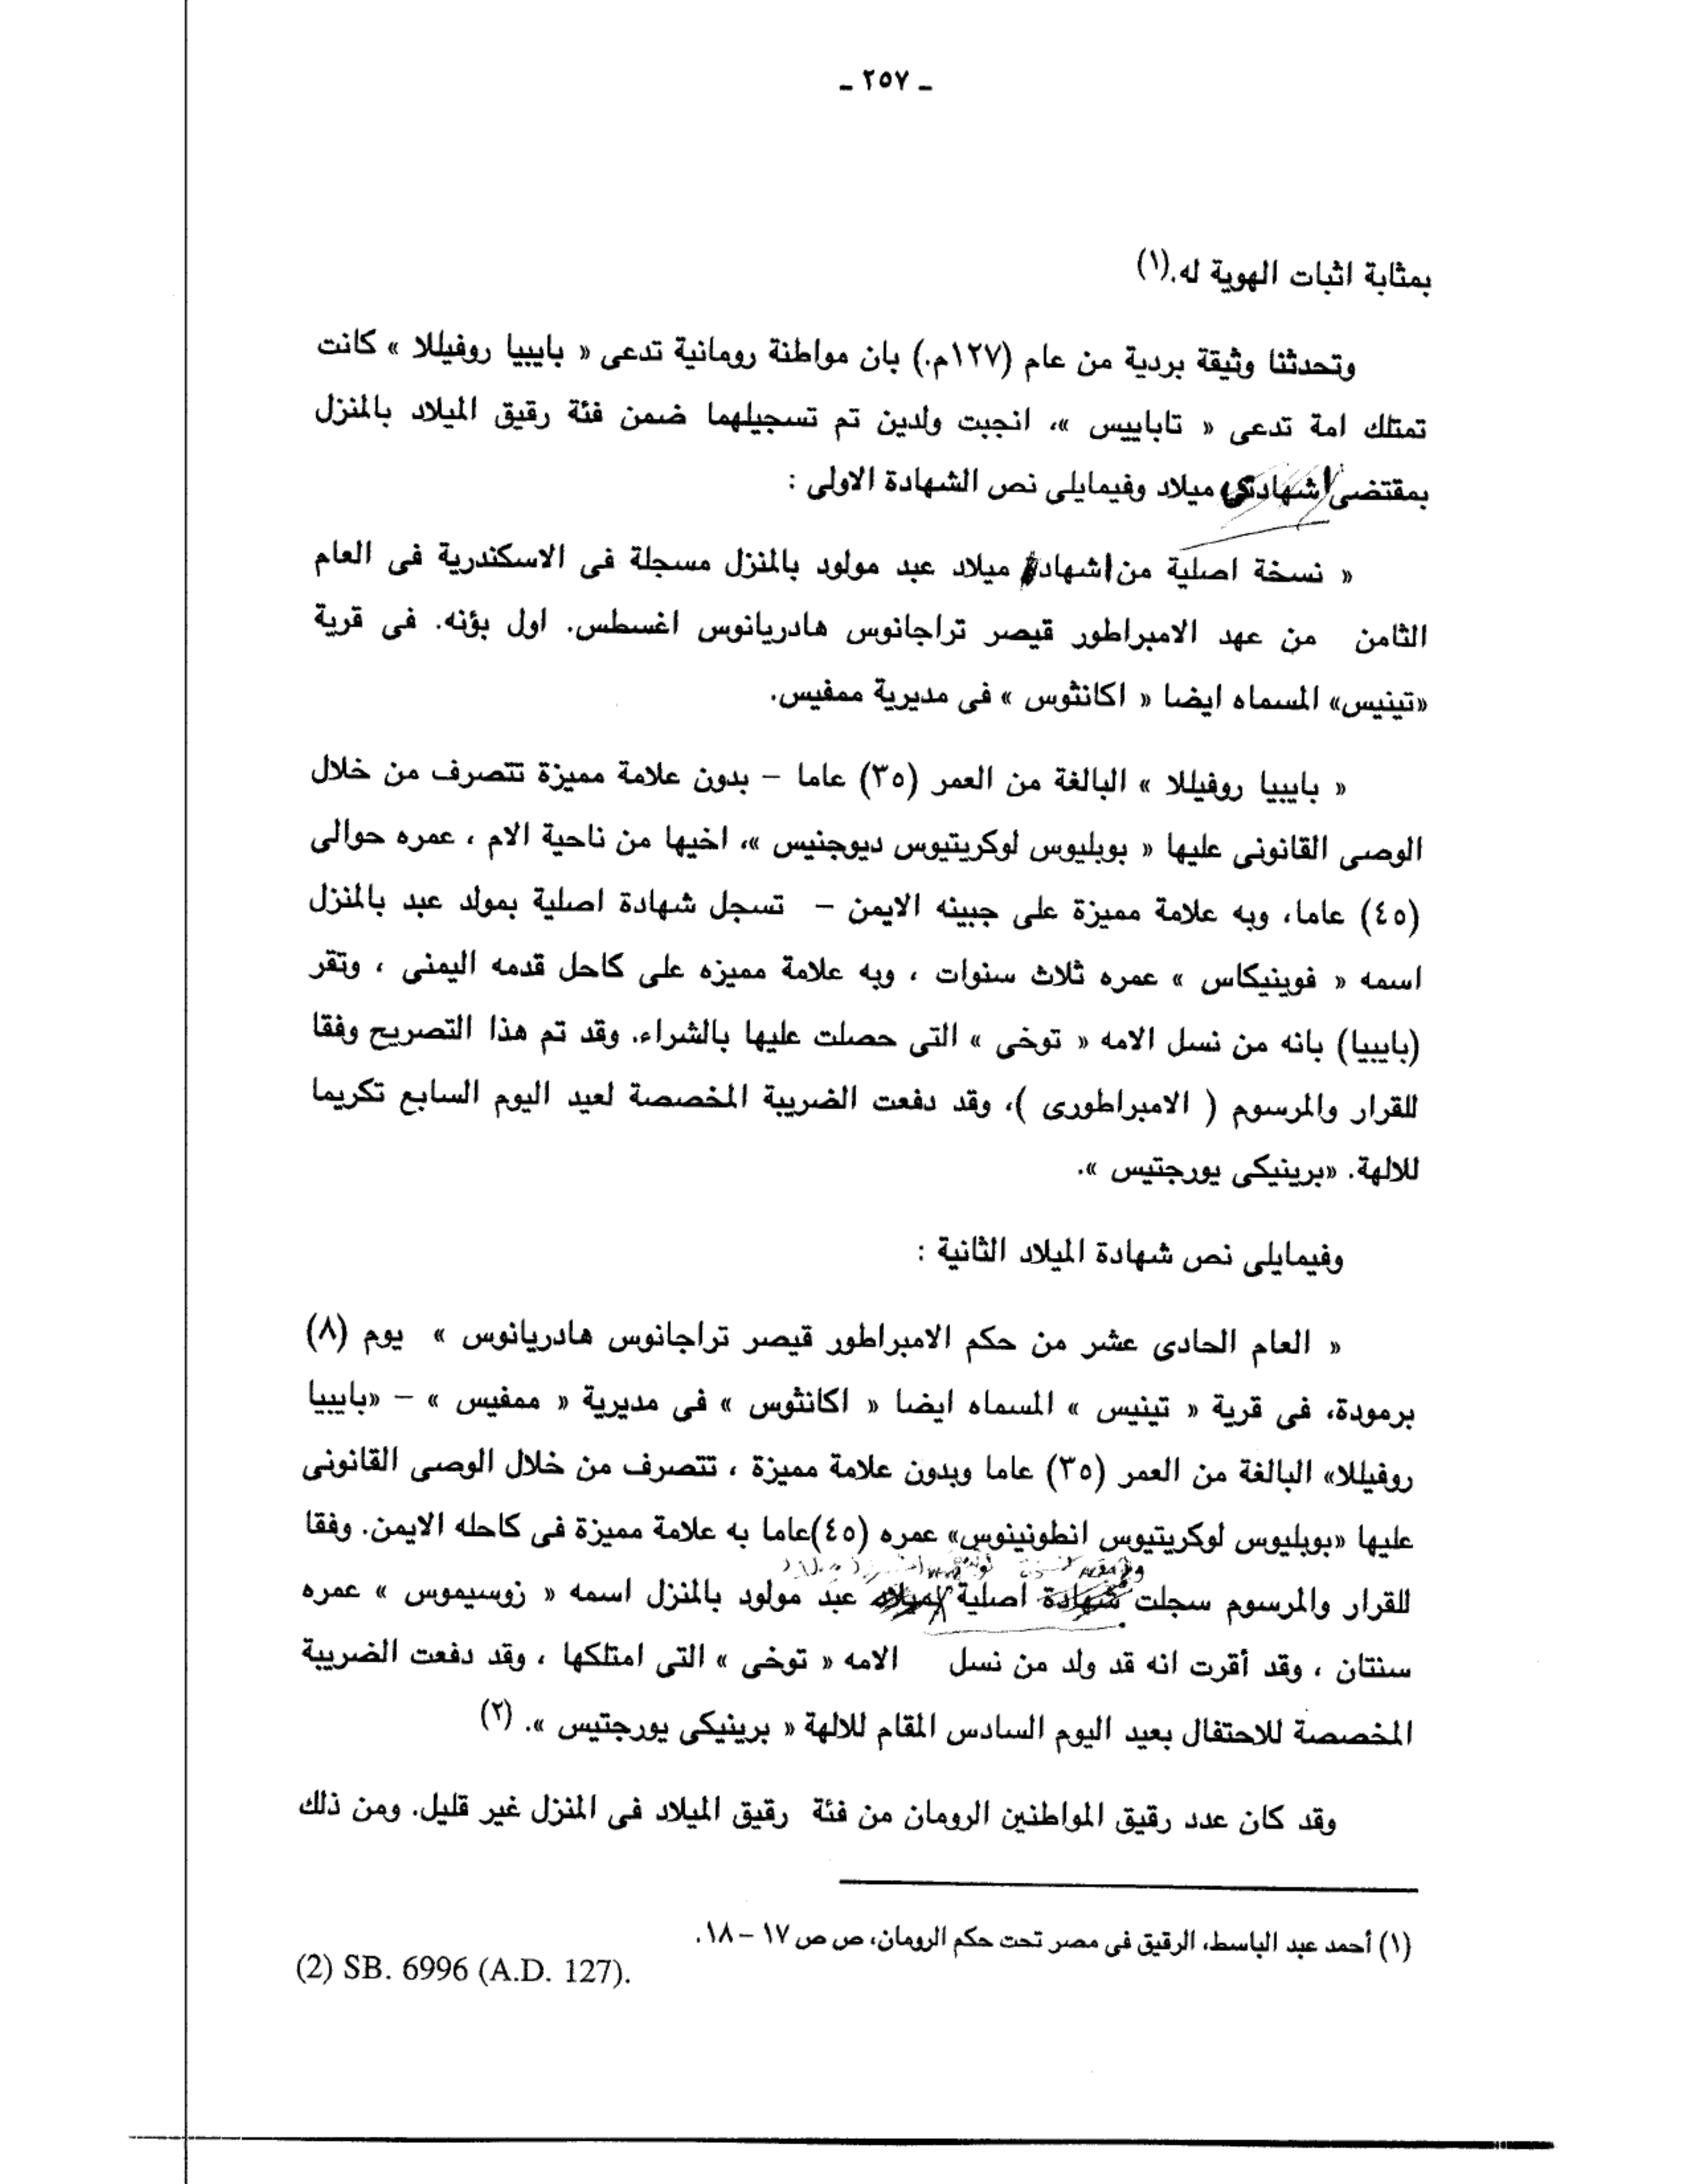 ـ ٢٥٧ ـ
بمثابة اثبات الهوية له.(١)
وتحدثنا وثيقة بردية من عام (١٢٧م.) بان مواطنة رومانية تدعى « بايبيا روفيللا » كانت
تمتلك امة تدعى « تاباييس »، انجبت ولدين تم تسجيلهما ضمن فئة رقيق الميلاد بالمنزل
بمقتضى شهادتى ميلاد وفيمايلى نص الشهادة الاولى :
« نسخة اصلية من اشهاد ميلاد عبد مولود بالمنزل مسجلة فى الاسكندرية فى العام
الثامن من عهد الامبراطور قيصر تراجانوس هادريانوس اغسطس. اول بؤنه. فى قرية
«تينيس» المسماه ايضا « اكانثوس » فى مديرية ممفيس.
« بايبيا روفيللا » البالغة من العمر (٣٥) عاما – بدون علامة مميزة تتصرف من خلال
الوصى القانونى عليها « بوبليوس لوكريتيوس ديوجنيس »، اخيها من ناحية الام ، عمره حوالى
(٤٥) عاما، وبه علامة مميزة على جبينه الايمن – تسجل شهادة اصلية بمولد عبد بالمنزل
اسمه « فوينيكاس » عمره ثلاث سنوات ، وبه علامة مميزه على كاحل قدمه اليمنى ، وتقر
(بايبيا) بانه من نسل الامه « توخى » التى حصلت عليها بالشراء. وقد تم هذا التصريح وفقا
للقرار والمرسوم ( الامبراطورى )، وقد دفعت الضريبة المخصصة لعيد اليوم السابع تكريما
للالهة. «برينيكى يورجتيس ».
وفيمايلى نص شهادة الميلاد الثانية :
« العام الحادى عشر من حكم الامبراطور قيصر تراجانوس هادريانوس » يوم (٨)
برمودة، فى قرية « تينيس » المسماه ايضا « اكانثوس » فى مديرية « ممفيس » – «بايبيا
روفيللا» البالغة من العمر (٣٥) عاما وبدون علامة مميزة ، تتصرف من خلال الوصى القانونى
عليها «بوبليوس لوكريتيوس انطونينوس» عمره (٤٥)عاما به علامة مميزة فى كاحله الايمن. وفقا
للقرار والمرسوم سجلت شهادة اصلية لميلاد عبد مولود بالمنزل اسمه « زوسيموس » عمره
سنتان ، وقد أقرت انه قد ولد من نسل الامه « توخى » التى امتلكها ، وقد دفعت الضريبة
المخصصة للاحتفال بعيد اليوم السادس المقام للالهة « برينيكى يورجتيس ». (٢)
وقد كان عدد رقيق المواطنين الرومان من فئة رقيق الميلاد فى المنزل غير قليل. ومن ذلك
(١) أحمد عبد الباسط، الرقيق فى مصر تحت حكم الرومان، ص ص ١٧ – ١٨.
(2) SB. 6996 (A.D. 127).